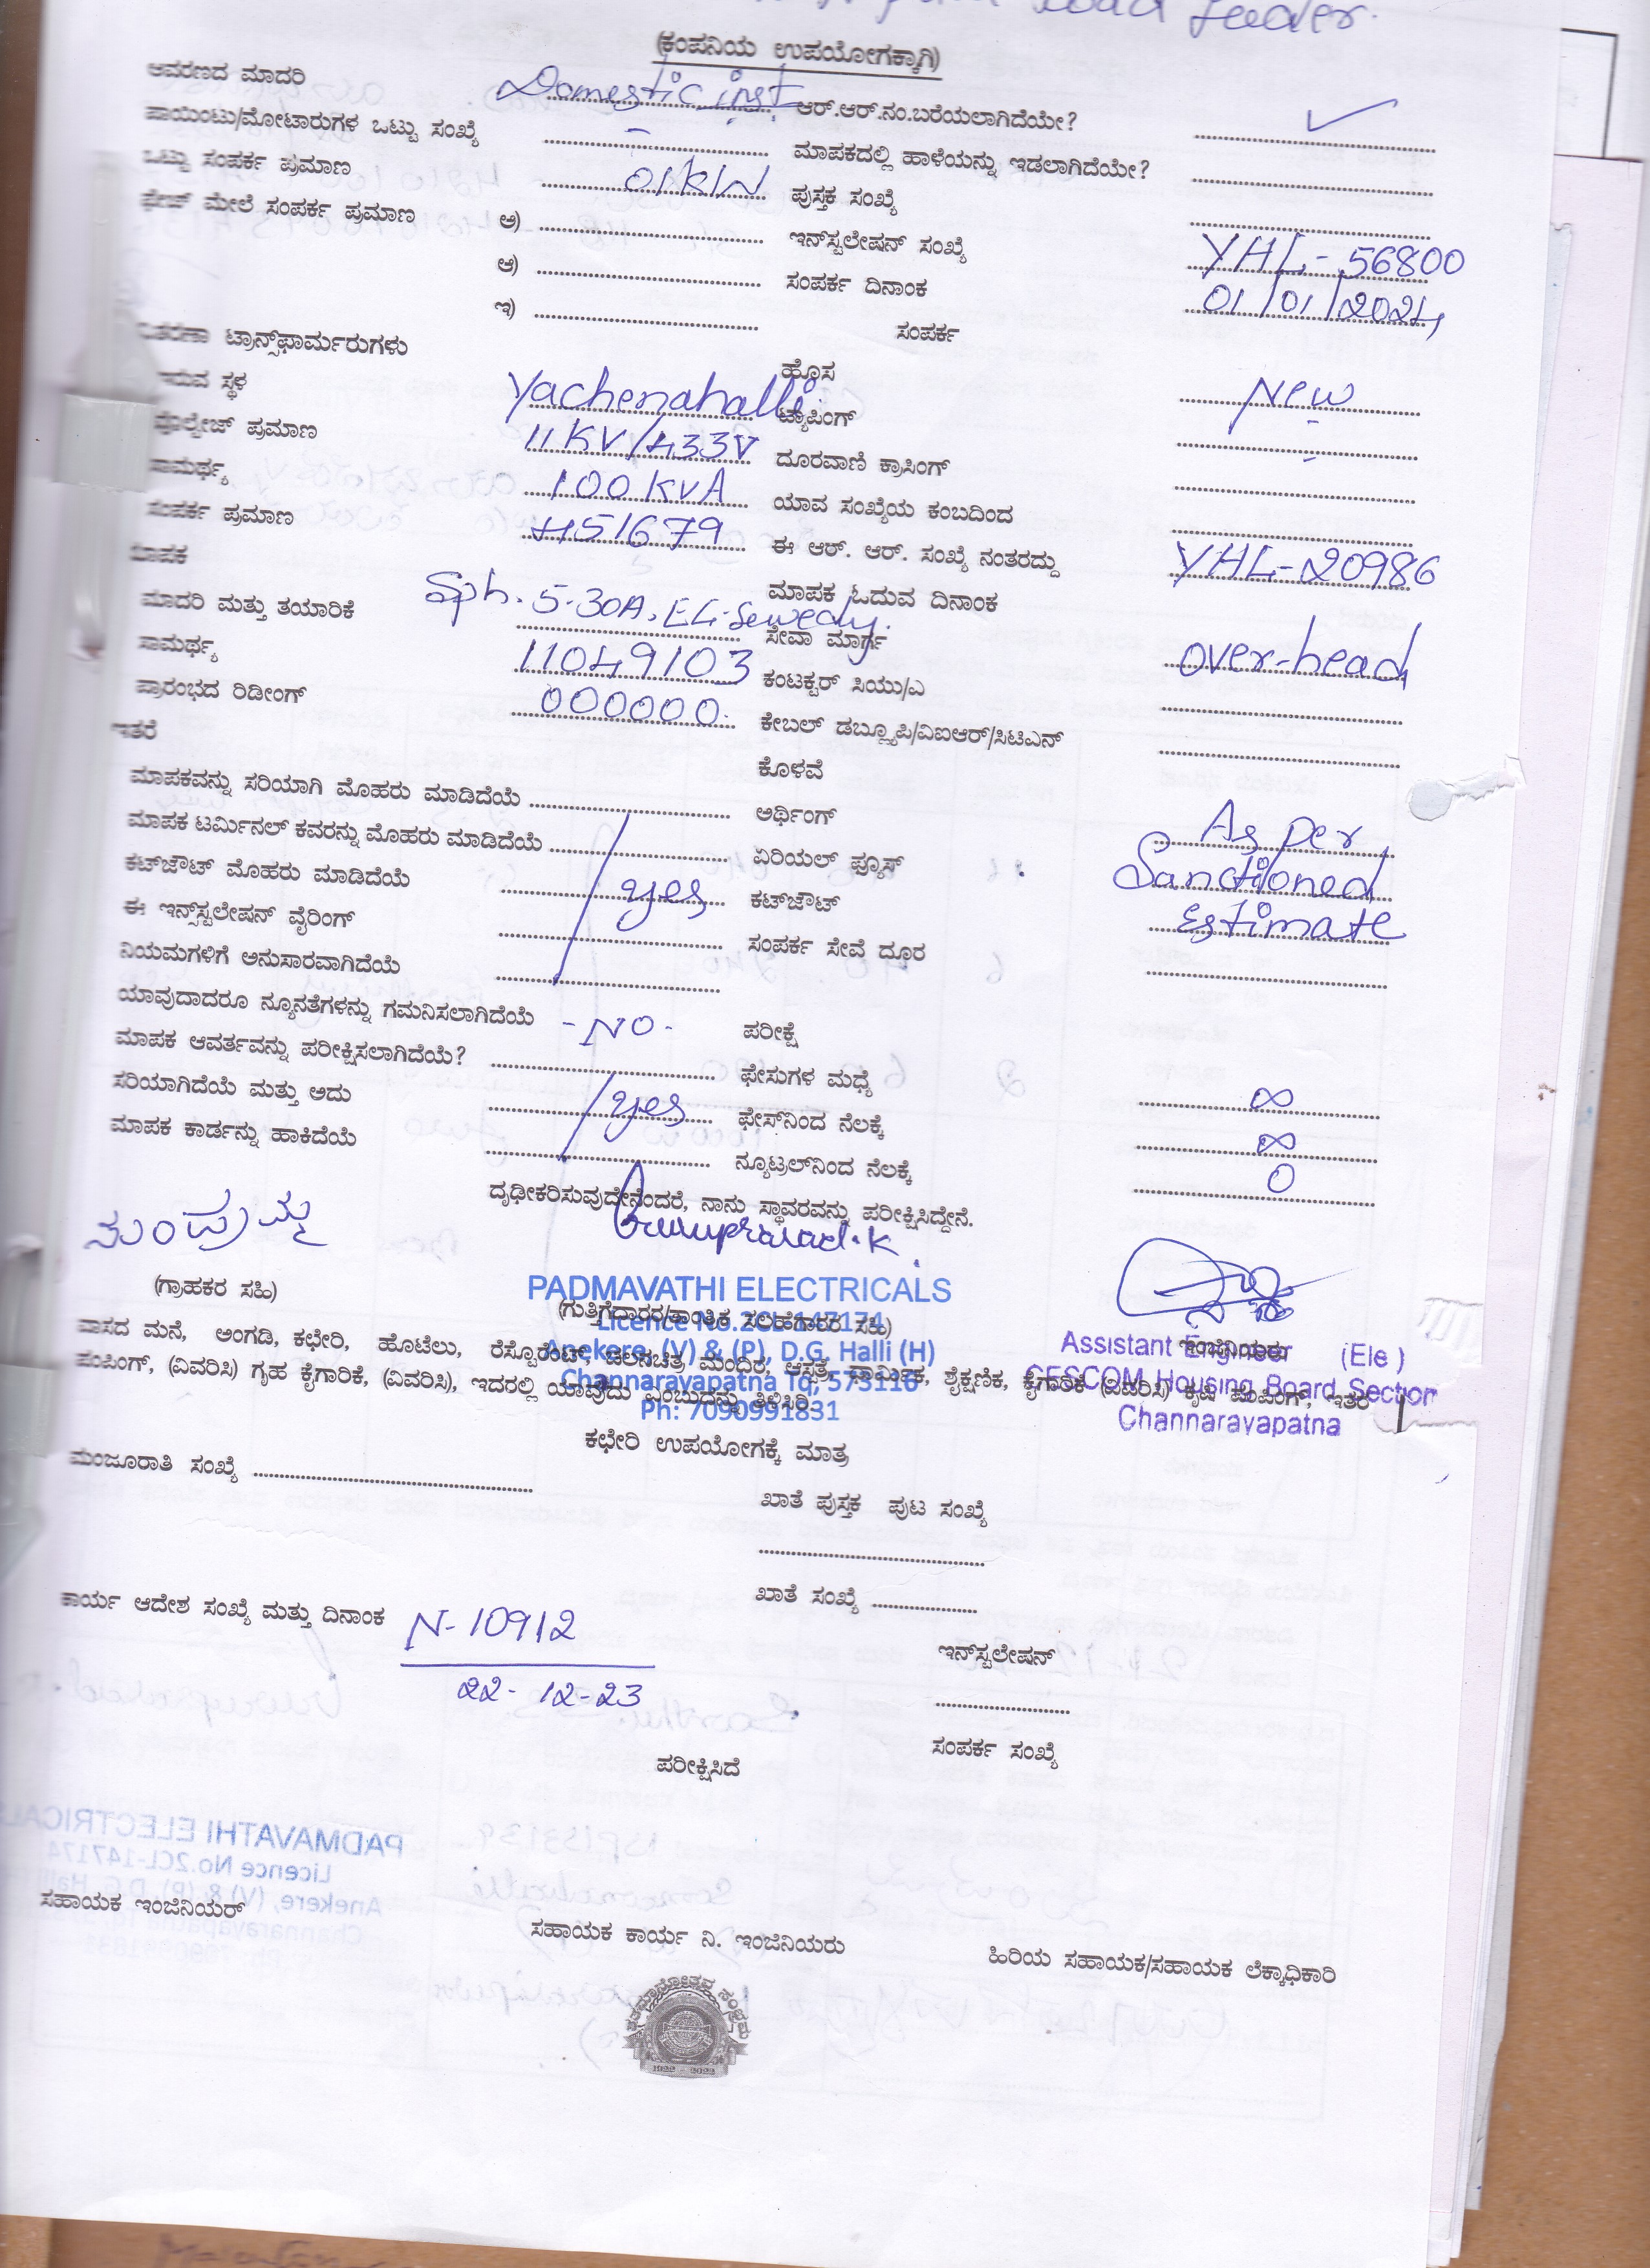 Road feeder.
(ಕಂಪನಿಯ ಉಪಯೋಗಕ್ಕಾಗಿ)
ಆವರಣದ ಮಾದರಿ Domestic inst ಆರ್.ಆರ್.ನಂ.ಬರೆಯಲಾಗಿದೆಯೇ? ✓
ಪಾಯಿಂಟು/ಮೋಟಾರುಗಳ ಒಟ್ಟು ಸಂಖ್ಯೆ - ಮಾಪಕದಲ್ಲಿ ಹಾಳೆಯನ್ನು ಇಡಲಾಗಿದೆಯೇ?
ಒಟ್ಟು ಸಂಪರ್ಕ ಪ್ರಮಾಣ 01KW ಪುಸ್ತಕ ಸಂಖ್ಯೆ
ಫೇಜ್ ಮೇಲೆ ಸಂಪರ್ಕ ಪ್ರಮಾಣ ಅ) ಇನ್‌ಸ್ಟಲೇಷನ್ ಸಂಖ್ಯೆ YHL-56800
ಆ) ಸಂಪರ್ಕ ದಿನಾಂಕ 01/01/2024
ಇ) ಸಂಪರ್ಕ
ವಿತರಣಾ ಟ್ರಾನ್ಸ್‌ಫಾರ್ಮರುಗಳು ಹೊಸ New
ಇರುವ ಸ್ಥಳ Yachenahalli ಟ್ಯಾಪಿಂಗ್ -
ವೋಲ್ಟೇಜ್ ಪ್ರಮಾಣ 11KV/433V ದೂರವಾಣಿ ಕ್ರಾಸಿಂಗ್
ಸಾಮರ್ಥ್ಯ 100KVA ಯಾವ ಸಂಖ್ಯೆಯ ಕಂಬದಿಂದ
ಸಂಪರ್ಕ ಪ್ರಮಾಣ 451679 ಈ ಆರ್. ಆರ್. ಸಂಖ್ಯೆ ನಂತರದ್ದು YHL-20986
ಮಾಪಕ ಮಾಪಕ ಓದುವ ದಿನಾಂಕ
ಮಾದರಿ ಮತ್ತು ತಯಾರಿಕೆ Sph. 5-30A, EL-Sewedy. ಸೇವಾ ಮಾರ್ಗ over-head
ಸಾಮರ್ಥ್ಯ 11049103 ಕಂಟಕ್ಟರ್ ಸಿಯು/ಎ
ಪ್ರಾರಂಭದ ರಿಡೀಂಗ್ 000000 ಕೇಬಲ್ ಡಬ್ಲ್ಯೂಪಿ/ವಿಐಆರ್/ಸಿಟಿಎನ್
ಇತರೆ ಕೊಳವೆ
ಮಾಪಕವನ್ನು ಸರಿಯಾಗಿ ಮೊಹರು ಮಾಡಿದೆಯೆ ಅರ್ಥಿಂಗ್ As per
ಮಾಪಕ ಟರ್ಮಿನಲ್ ಕವರನ್ನು ಮೊಹರು ಮಾಡಿದೆಯೆ ಏರಿಯಲ್ ಫ್ಯೂಸ್ Sanctioned
ಕಟ್‌ಔಟ್ ಮೊಹರು ಮಾಡಿದೆಯೆ yes ಕಟ್‌ಔಟ್ estimate
ಈ ಇನ್ಸ್‌ಸ್ಟಲೇಷನ್ ವೈರಿಂಗ್ ಸಂಪರ್ಕ ಸೇವೆ ದೂರ
ನಿಯಮಗಳಿಗೆ ಅನುಸಾರವಾಗಿದೆಯೆ
ಯಾವುದಾದರೂ ನ್ಯೂನತೆಗಳನ್ನು ಗಮನಿಸಲಾಗಿದೆಯೆ -NO- ಪರೀಕ್ಷೆ
ಮಾಪಕ ಆವರ್ತವನ್ನು ಪರೀಕ್ಷಿಸಲಾಗಿದೆಯೆ? ಫೇಸುಗಳ ಮಧ್ಯೆ ∞
ಸರಿಯಾಗಿದೆಯೆ ಮತ್ತು ಅದು yes ಫೇಸ್‌ನಿಂದ ನೆಲಕ್ಕೆ ∞
ಮಾಪಕ ಕಾರ್ಡನ್ನು ಹಾಕಿದೆಯೆ ನ್ಯೂಟ್ರಲ್‌ನಿಂದ ನೆಲಕ್ಕೆ 0
ದೃಢೀಕರಿಸುವುದೇನೆಂದರೆ, ನಾನು ಸ್ಥಾವರವನ್ನು ಪರೀಕ್ಷಿಸಿದ್ದೇನೆ.
Guruprasad.K
(ಗ್ರಾಹಕರ ಸಹಿ)
PADMAVATHI ELECTRICALS
(ಗುತ್ತಿಗೆದಾರರ/ತಾಂತ್ರಿಕ ಸಲಹೆಗಾರರ ಸಹಿ)
Licence No.2CL-147174
Anekere, (V) & (P), D.G. Halli (H)
Channarayapatna Tq, 573116
Ph: 7090991831
ಇಂಜಿನಿಯರು
Assistant Engineer (Ele)
CESCOM Housing Board Section
Channarayapatna
ವಾಸದ ಮನೆ, ಅಂಗಡಿ, ಕಛೇರಿ, ಹೊಟೆಲು, ರೆಸ್ಟೊರೆಂಟ್, ಚಲನಚಿತ್ರ ಮಂದಿರ, ಆಸ್ಪತ್ರೆ, ಧಾರ್ಮಿಕ, ಶೈಕ್ಷಣಿಕ, ಕೈಗಾರಿಕೆ (ವಿವರಿಸಿ) ಕೃಷಿ ಪಂಪಿಂಗ್, ಇತರೆ
ಪಂಪಿಂಗ್, (ವಿವರಿಸಿ) ಗೃಹ ಕೈಗಾರಿಕೆ, (ವಿವರಿಸಿ), ಇದರಲ್ಲಿ ಯಾವುದು ಎಂಬುದನ್ನು ತಿಳಿಸಿರಿ.
ಕಛೇರಿ ಉಪಯೋಗಕ್ಕೆ ಮಾತ್ರ
ಮಂಜೂರಾತಿ ಸಂಖ್ಯೆ
ಖಾತೆ ಪುಸ್ತಕ ಪುಟ ಸಂಖ್ಯೆ
ಖಾತೆ ಸಂಖ್ಯೆ
ಕಾರ್ಯ ಆದೇಶ ಸಂಖ್ಯೆ ಮತ್ತು ದಿನಾಂಕ N-10912
22-12-23
ಇನ್‌ಸ್ಟಲೇಷನ್
ಸಂಪರ್ಕ ಸಂಖ್ಯೆ
ಪರೀಕ್ಷಿಸಿದೆ
ಸಹಾಯಕ ಇಂಜಿನಿಯರ್
ಸಹಾಯಕ ಕಾರ್ಯ ನಿ. ಇಂಜಿನಿಯರು
ಹಿರಿಯ ಸಹಾಯಕ/ಸಹಾಯಕ ಲೆಕ್ಕಾಧಿಕಾರಿ